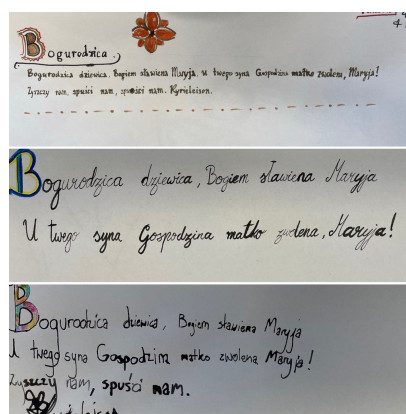 Bogurodzica.
Bogurodzica dziewica, Bogiem sławiena Maryja. U twego syna Gospodzina matko zwolena, Maryja!
Zyszczy nam, spuści nam. Kyrieleison.
Bogurodzica dziewica, Bogiem sławiena Maryja
U twego syna Gospodzina matko zwolena, Maryja!
Bogurodzica dziewica, Bogiem sławiena Maryja
U twego syna Gospodzina matko zwolena Maryja!
Zyszczy nam, spuści nam.